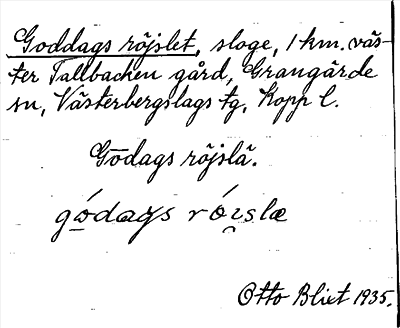 Goddags röjslet, sloge, 1 km. väs-
ter Tallbacken gård, Grangärde
sn, Västerbergslags tg, Kopp l.
Gōdags röjslä.
gó̱dags róɪslæ
Otto Blixt 1935.